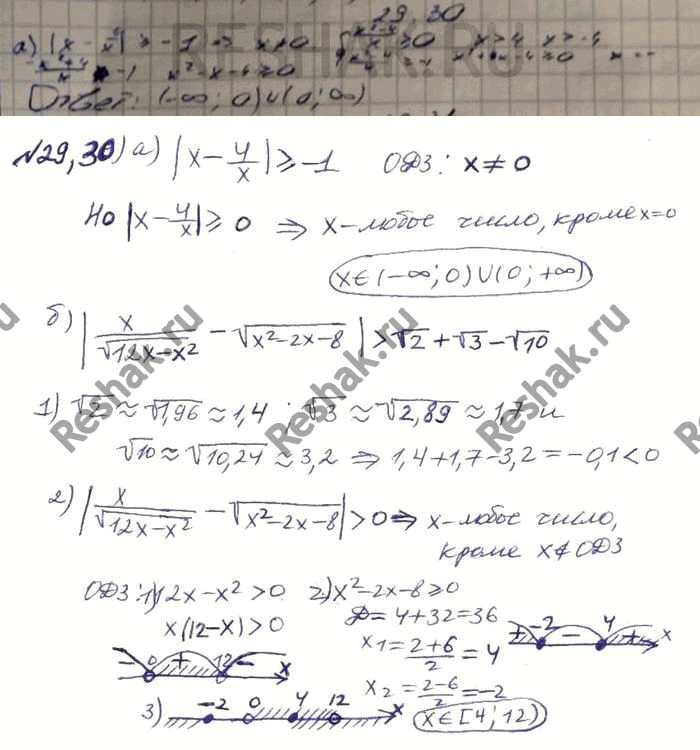 29.30
а) |x - 4/x| ≥ -1 ⇒ x≠0
x² - x - 4 ≥ 0
Ответ: (-∞; 0)∪(0; ∞)
№29,30) а) |x - 4/x| ≥ -1 ОДЗ: x ≠ 0
Но |x - 4/x| ≥ 0 ⇒ x - любое число, кроме x=0
x∈(-∞; 0)∪(0; +∞)
б) |x/√(12x-x²) - √(x²-2x-8)| > √2 + √3 - √10
1) √2 ≈ √1,96 ≈ 1,4 ; √3 ≈ √2,89 ≈ 1,7 и
√10 ≈ √10,24 ≈ 3,2 ⇒ 1,4+1,7-3,2 = -0,1 < 0
2) |x/√(12x-x²) - √(x²-2x-8)| > 0 ⇒ x - любое число,
кроме x∉ОДЗ
ОДЗ: 1) 12x-x² > 0 2) x²-2x-8 ≥ 0
x(12-x) > 0 D = 4+32 = 36
x₁ = (2+6)/2 = 4
x₂ = (2-6)/2 = -2
- 0 + 12 - x
+ -2 - 4 + x
3) -2 0 4 12 x
x∈[4; 12)
Reshak.ru
Reshak.ru
Reshak.ru
RESHAK.RU